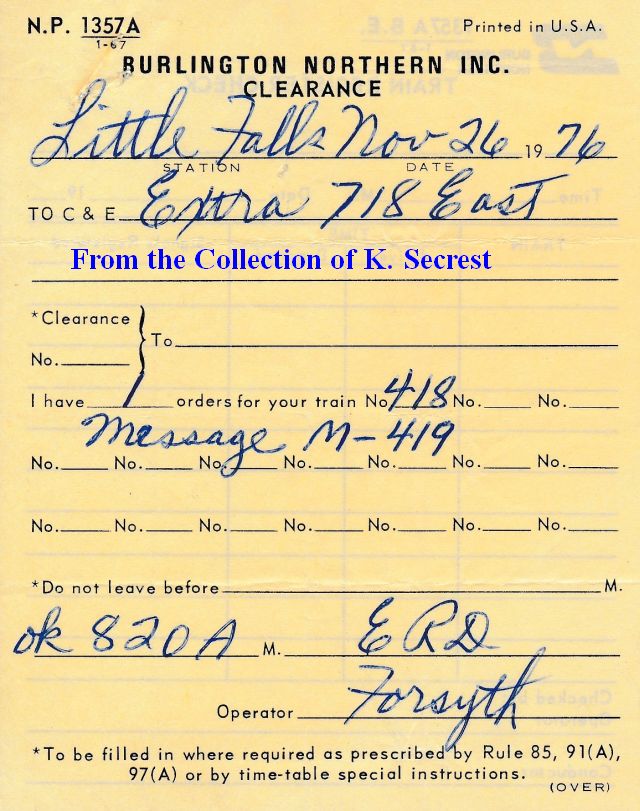 N.P. 1357A Printed in U.S.A.
1-67
BURLINGTON NORTHERN INC.
CLEARANCE
Little Falls Nov 26 1976
STATION DATE
TO C & E Extra 718 East
From the Collection of K. Secrest
*Clearance
No. } To
I have 1 orders for your train No. 418 No. No.
Message M-419
No. No. No. No. No. No. No.
No. No. No. No. No. No. No.
*Do not leave before M.
ok 820 A M. ERD
Operator Forsyth
*To be filled in where required as prescribed by Rule 85, 91(A),
97(A) or by time-table special instructions.
(OVER)